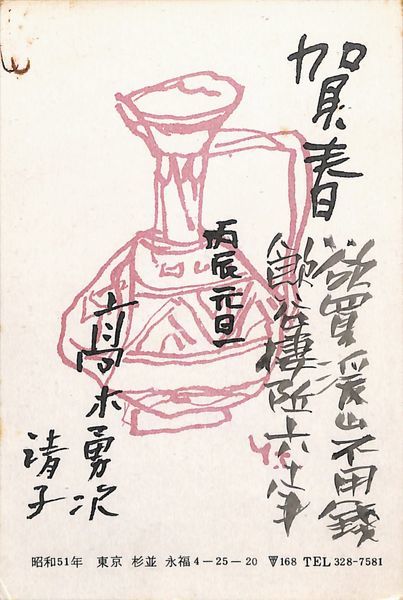 賀春
谿買溪山不用錢
飽公棲所六十年
丙辰元旦
高木勇次
靖子
Y.S
昭和51年　東京 杉並 永福4－25－20　〒168 TEL 328-7581